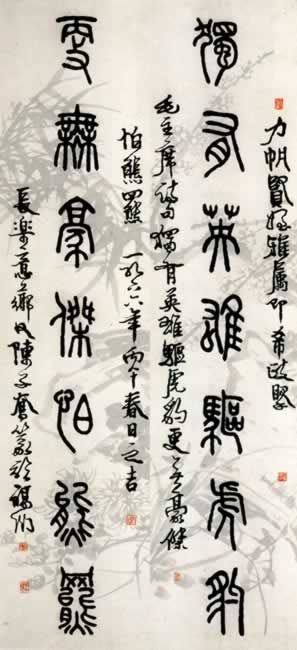 力帆賢姪雅屬即希政
獨有英雄驅虎豹
毛主席詩句獨有英雄驅虎豹更无豪傑
怕熊羆 一九六六年丙午春日之吉
更無豪傑怕熊羆
長樂意鄉陳子奮篆於福州